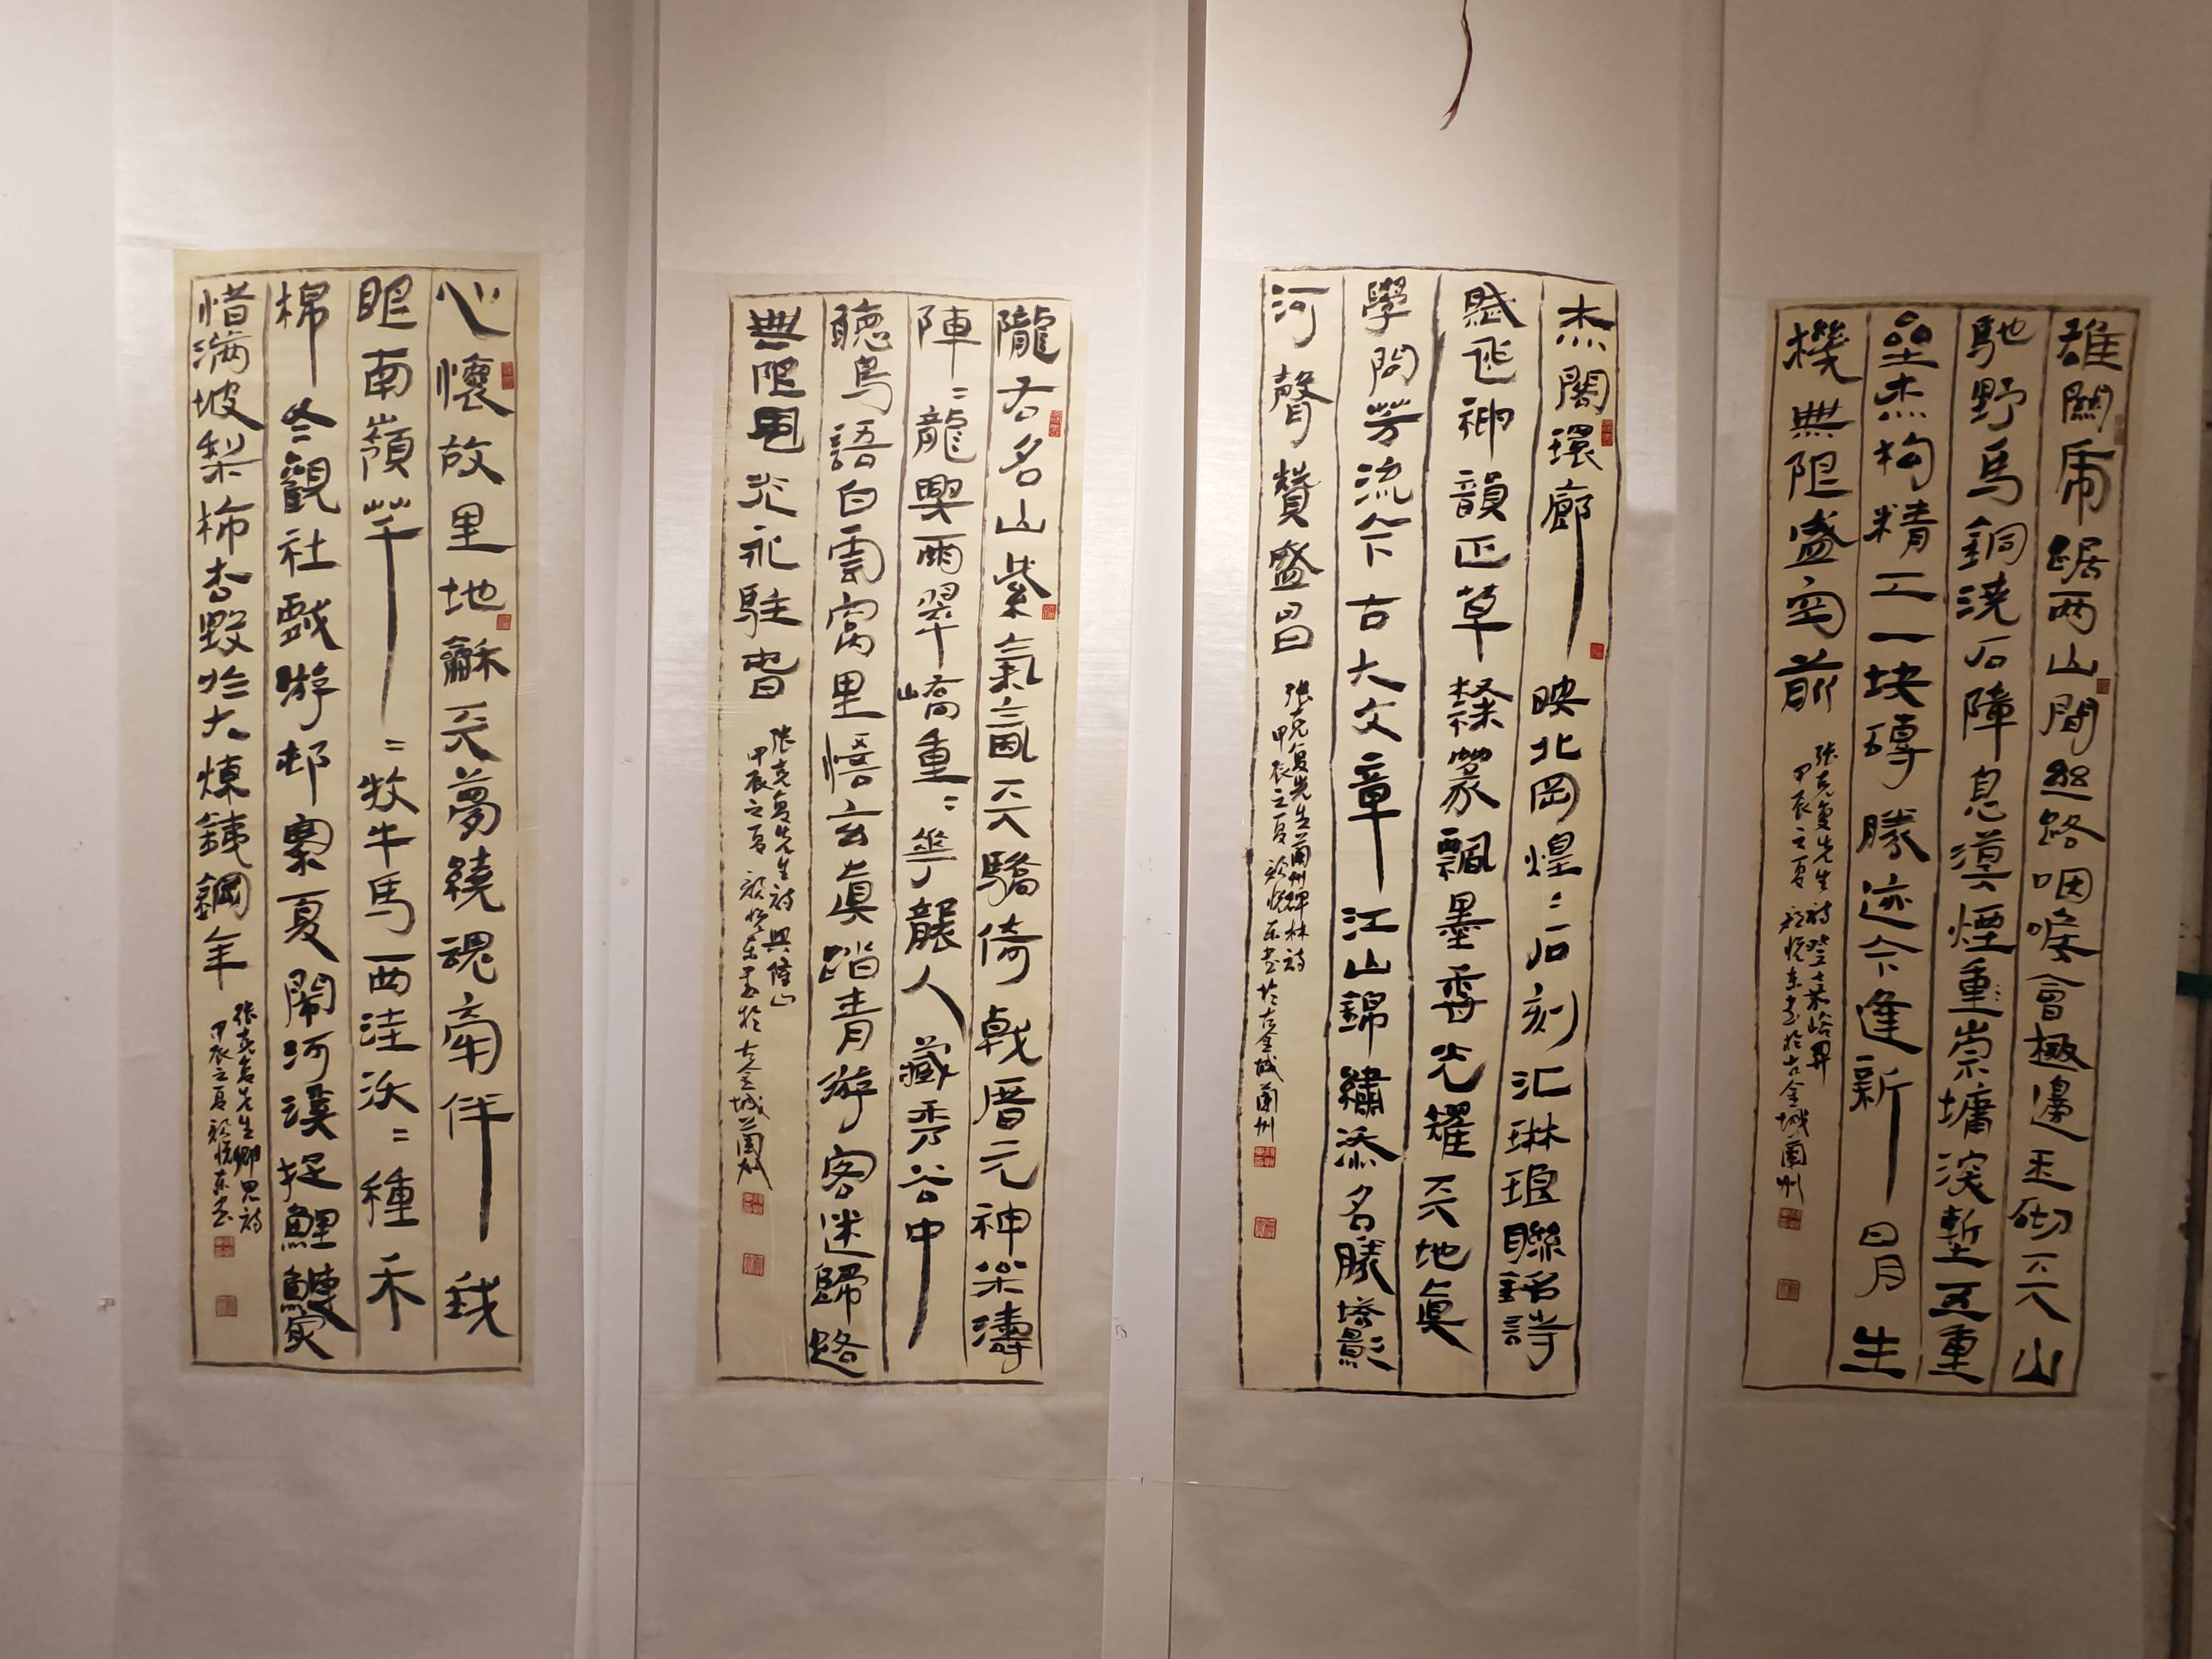 雄關虎踞两山間絲路咽喉會極邊玉砌天山
馳野馬銅澆石障息漠煙重〻崇墉深塹五重
壘杰构精工一块磚勝迹今逢新日月生
機無阻盛空前
張克复先生詩登嘉峪關
甲辰之夏 悦东书於古金城蘭州
杰閣環廊映北岡煌〻石刻汇琳琅聯銘詩
賦逞神韻正草隸篆飄墨香光耀天地真
學問芳流今古大文章江山錦繡添名勝塔影
河聲贊盛昌
張克复先生蘭州碑林詩
甲辰之夏 悦东书於古金城蘭州
隴右名山紫氣氤天驕倚戟厝元神松濤
陣〻龍興雨翠嶠重〻華襲人藏秀谷中
聽鳥語白雲窝里悟玄真踏青游客迷歸路
無限風光永駐春
張克复先生詩興隆山
甲辰之夏 悦东书於古金城蘭州
心懷故里地龢天夢繞魂牽伴我
眠南嶺芊〻牧牛馬西洼沃〻種禾
棉冬觀社戲游邨寨夏鬧河溪捉鯉鰻最
惜满坡梨柿杏毁於大煉鐵鋼年
張克复先生鄉思詩
甲辰之夏 悦东书